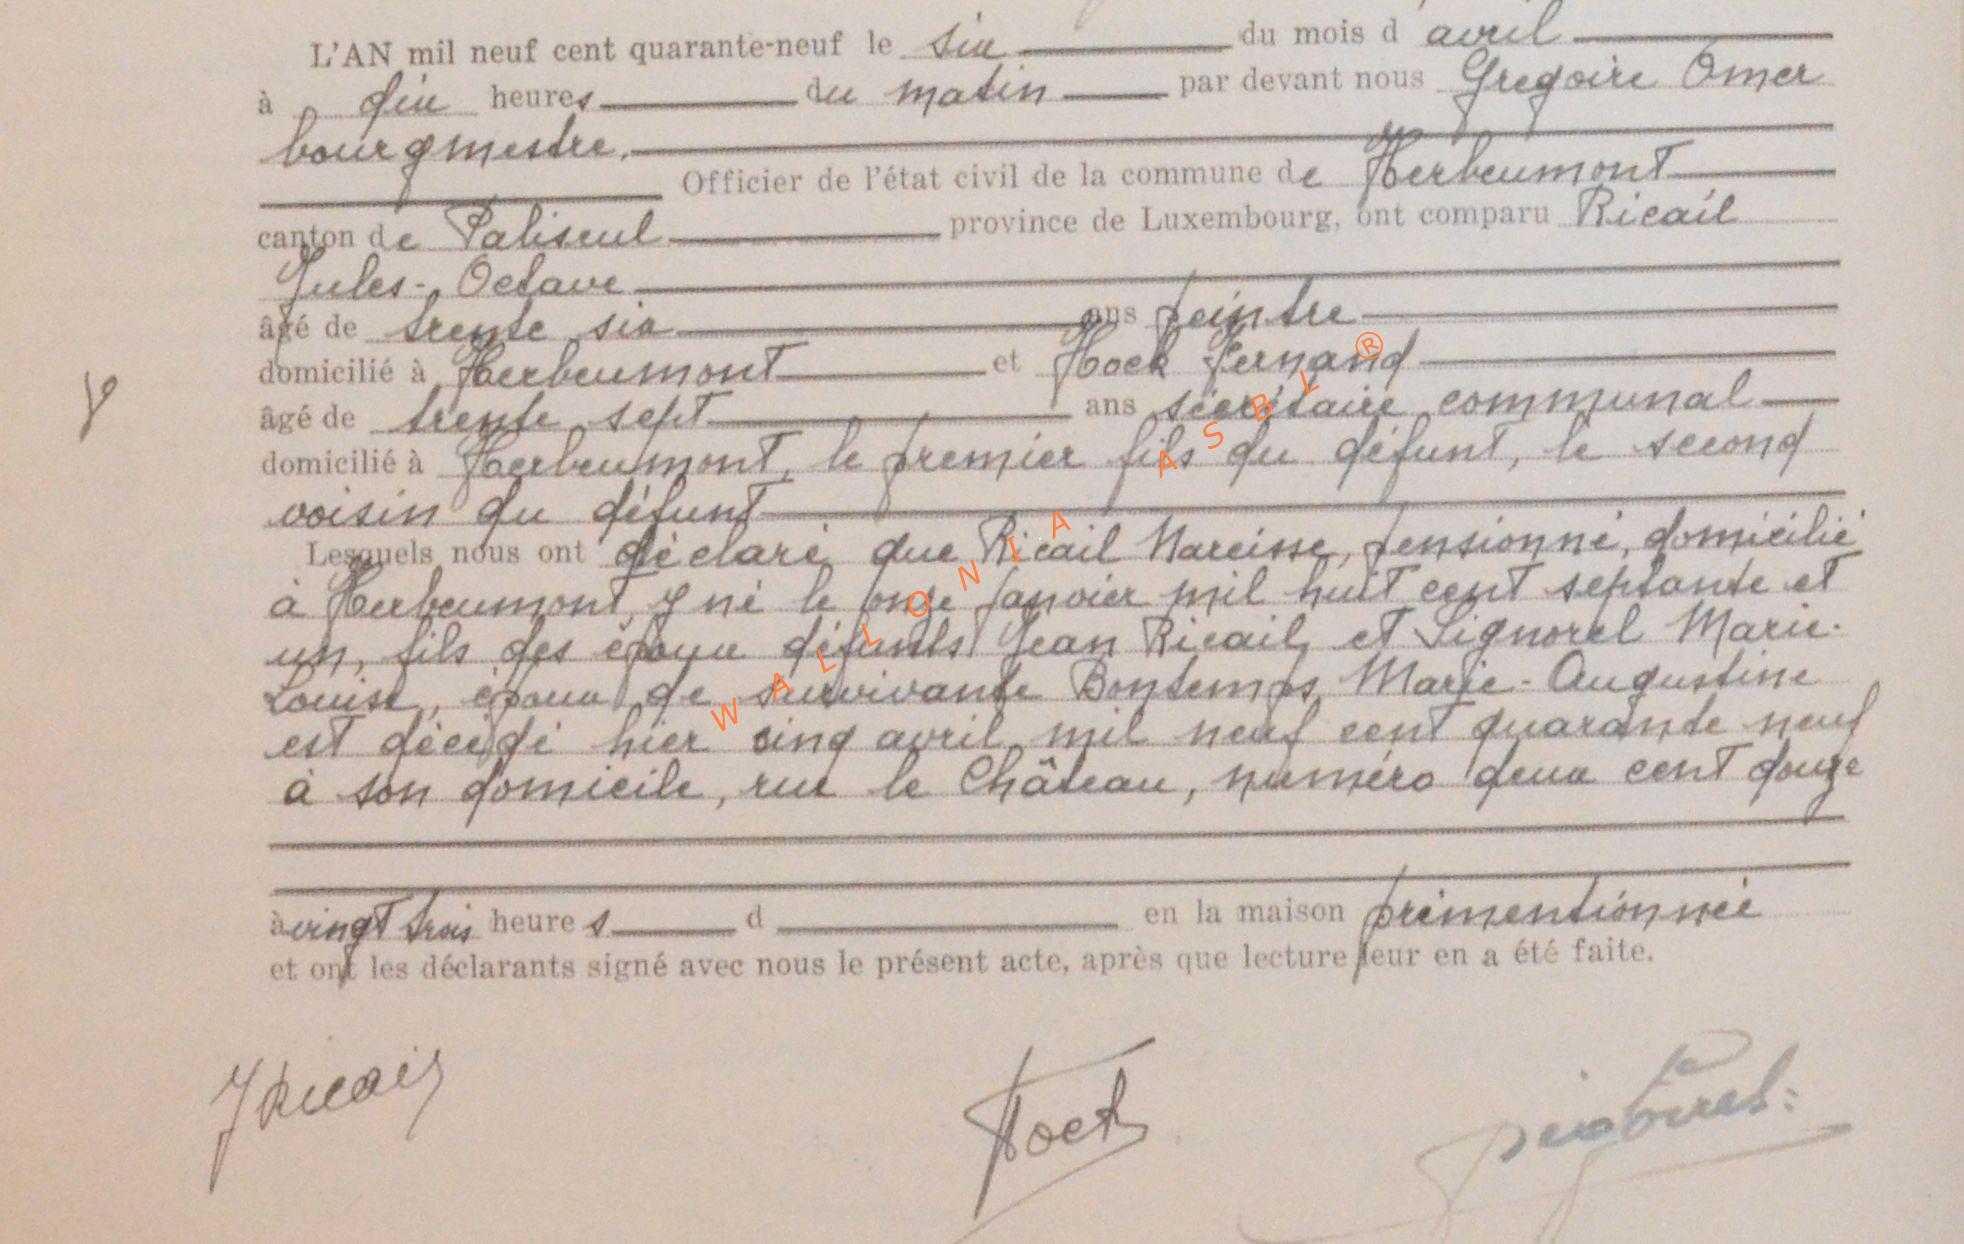 L'AN mil neuf cent quarante-neuf le six du mois d'avril
à dix heures du matin par devant nous Gregoire Omer
bourgmestre.
Officier de l'état civil de la commune de Herbeumont
canton de Paliseul province de Luxembourg, ont comparu Ricail
Jules-Octave
âgé de trente six ans peintre
domicilié à Herbeumont et Hock Fernand
âgé de trente sept ans secrétaire communal
domicilié à Herbeumont, le premier fils du défunt, le second
voisin du défunt
Lesquels nous ont déclaré que Ricail Narcisse, pensionné, domicilié
à Herbeumont, y né le onze janvier mil huit cent septante et
un, fils des époux défunts Jean Ricail et Lignorel Marie-
Louise, époux de survivante Bontemps Marie-Augustine
est décédé hier cinq avril mil neuf cent quarante neuf
à son domicile, rue le Château, numéro deux cent douze
à vingt trois heures d en la maison prémentionnée
et ont les déclarants signé avec nous le présent acte, après que lecture leur en a été faite.
JRicail
Hock
WALLONIA ASBL ®